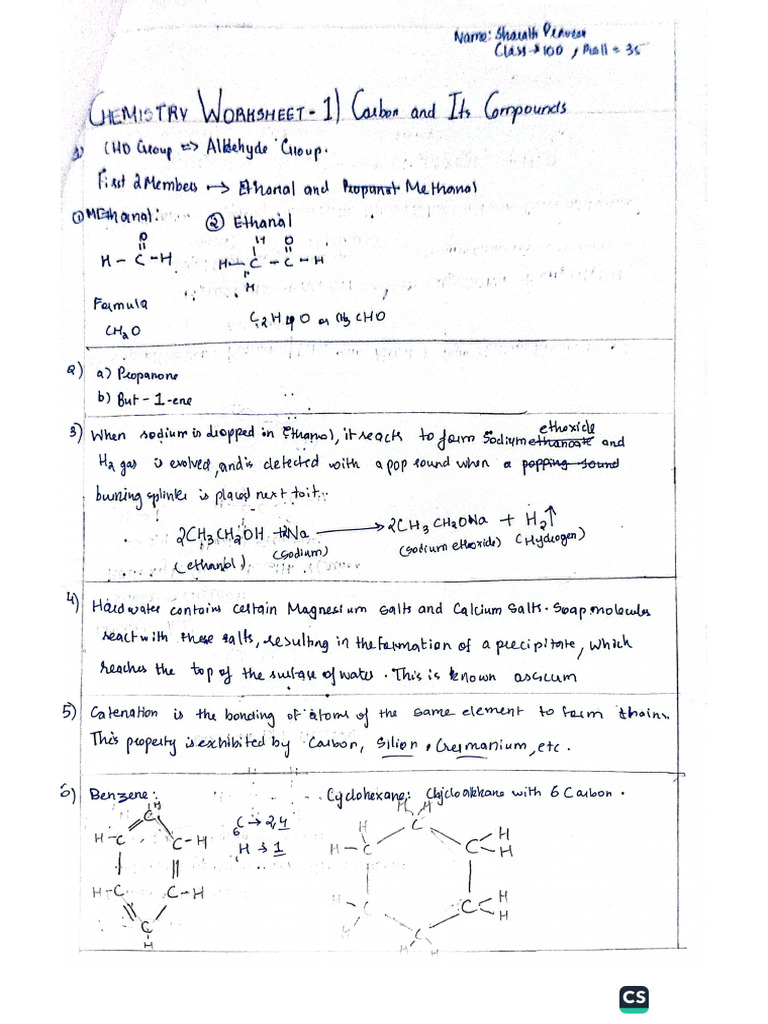 Name: Sharath
Class → 10D, Roll = 35
CHEMISTRY WORKSHEET - 1) Carbon and Its Compounds
1) CHO Group => Aldehyde Group.
First 2 Members → Ethanal and Propanal Methanal
① Methanal: ② Ethanal
O H O
H - C - H H - C - C - H
H
Formula
CH2O C2H4O or CH3CHO
2) a) Propanone
b) But - 1 - ene
3) When sodium is dropped in Ethanol, it reacts to form Sodium ethanoate ethoxide and
H2 gas is evolved, and is detected with a pop sound when a popping sound
burning splinter is placed next to it.
2CH3CH2OH + 2Na → 2CH3CH2ONa + H2↑
(ethanol) (sodium) (sodium ethoxide) (Hydrogen)
4) Hard water contains certain Magnesium salts and Calcium Salts. Soap molecules
react with these salts, resulting in the formation of a precipitate, which
reaches the top of the surface of water. This is known as scum
5) Catenation is the bonding of atoms of the same element to form chains.
This property is exhibited by Carbon, Silion, Germanium, etc.
6) Benzene: Cyclohexane: Cycloalkane with 6 Carbon.
6C → 2,4
H → 1
H
C
H - C C - H
H - C C - H
C
H
H H
C
H H
H - C C - H
H
C C - H
H
C
H H
CS